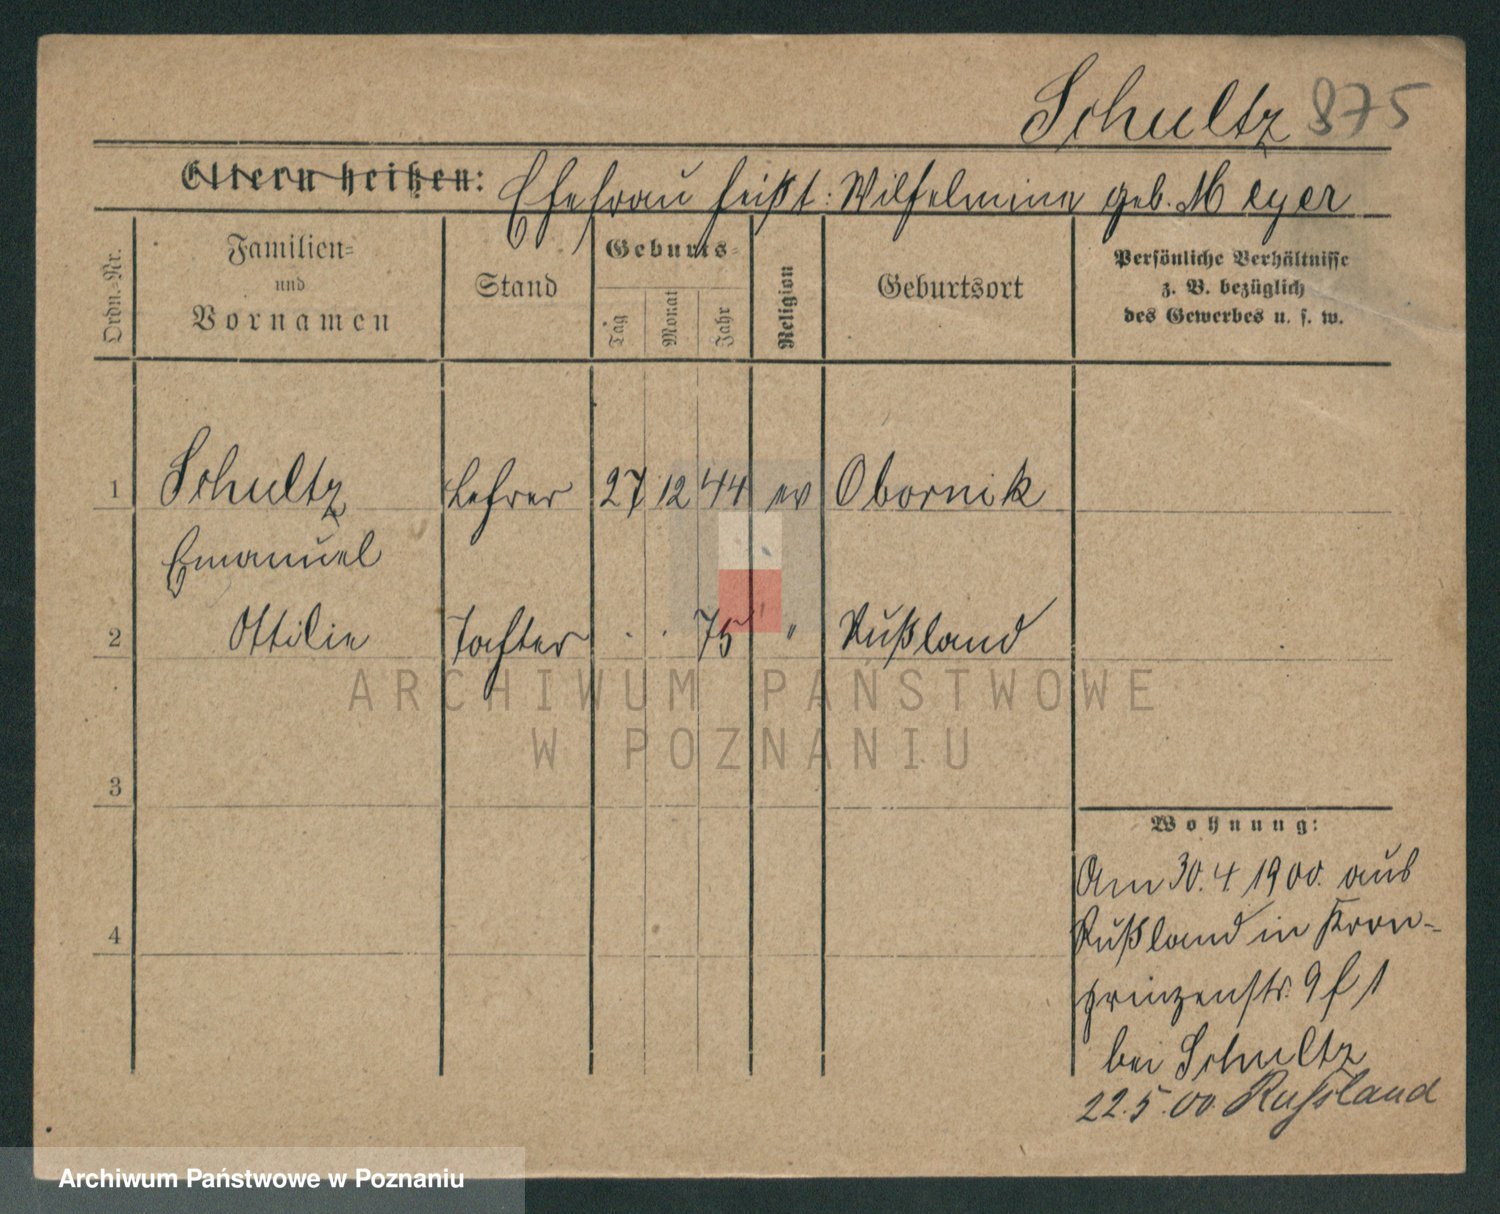 Schultz 875
Eltern heißen: Ehefrau heißt: Wilhelmine geb. Meyer
Ordn.-Nr.
Familien- und Vornamen
Stand
Geburts-
Tag
Monat
Jahr
Religion
Geburtsort
Persönliche Verhältnisse
z. B. bezüglich
des Gewerbes u. s. w.
1 Schultz Lehrer 27 12 44 ev Obornik
Emanuel
2 Ottilie Tochter . . 75 " Rußland
3
4
Wohnung:
Am 30. 4. 1900. aus
Rußland in Kron-
prinzenstr. 9 f 1
bei Schultz
22. 5. 00. Russland
ARCHIWUM PAŃSTWOWE
W POZNANIU
Archiwum Państwowe w Poznaniu